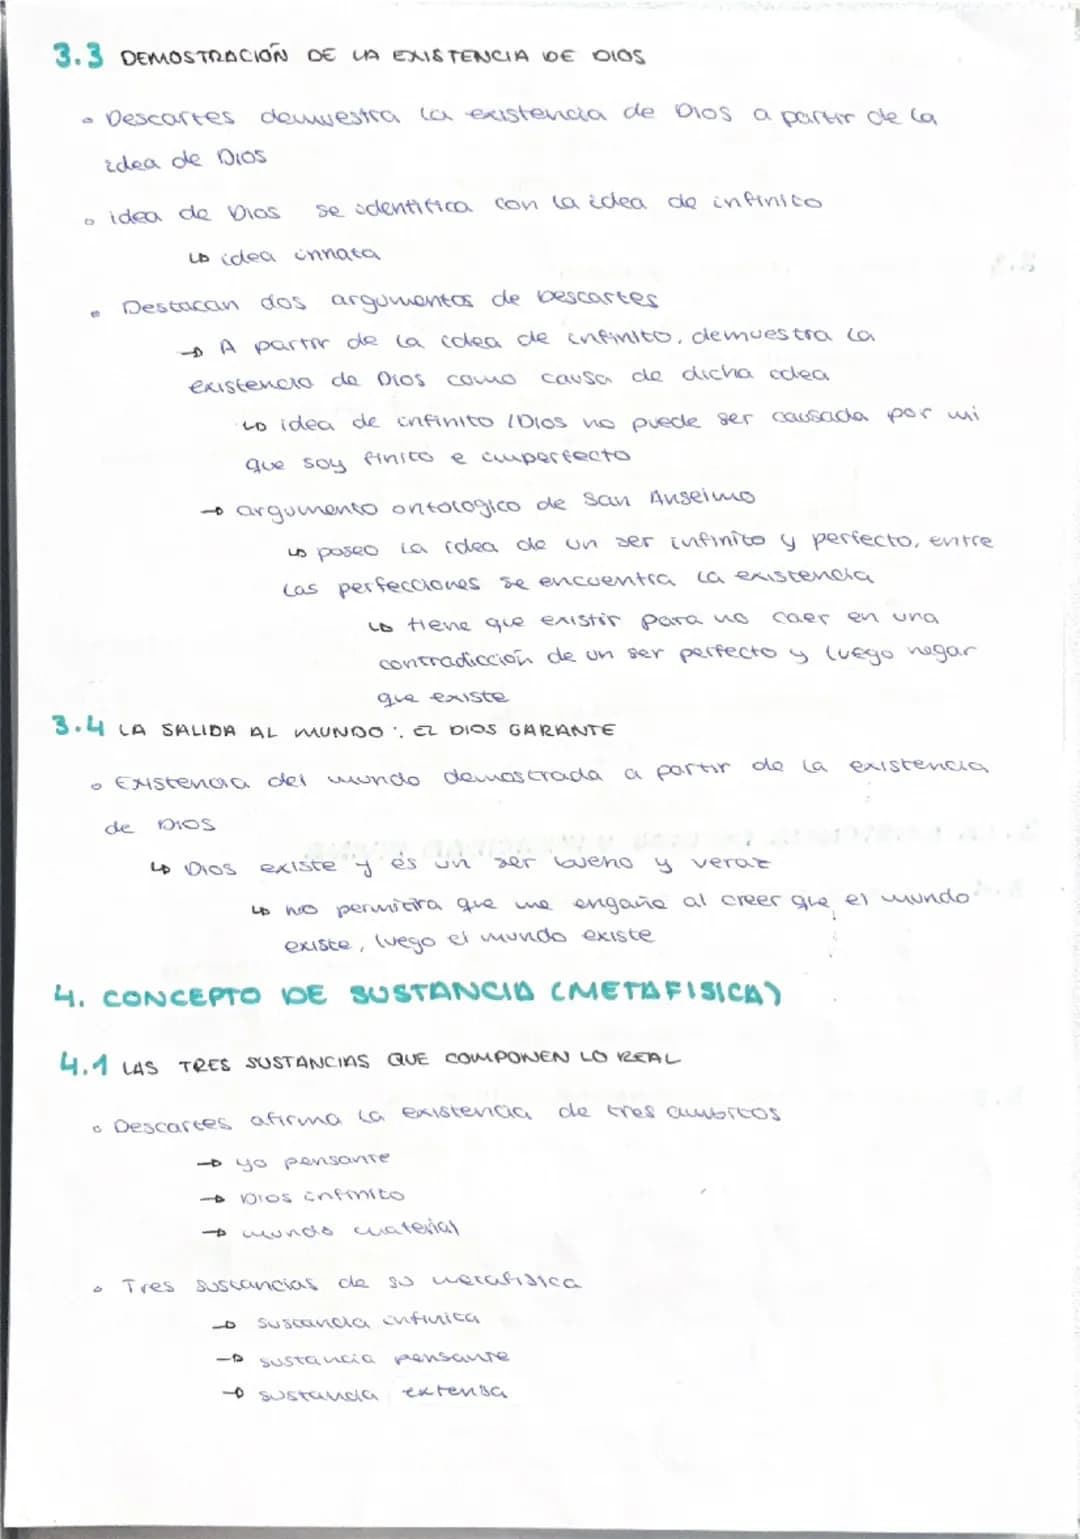 3.3 DEMOSTRACIÓN DE LA EXISTENCIA DE DIOS
Descartes demuestra la existencia de Dios a partir de la
idea de Dios
idea de Dios se identifica con la idea de infinito
↳ idea innata
Destacan dos argumentos de Descartes
→ A partir de la idea de infinito, demuestra la
existencia de Dios como causa de dicha idea
↳ idea de infinito / Dios no puede ser causada por mi
que soy finito e imperfecto
→ argumento ontologico de San Anselmo
↳ poseo la idea de un ser infinito y perfecto, entre
las perfecciones se encuentra la existencia
↳ tiene que existir para no caer en una
contradicción de un ser perfecto y luego negar
que existe
3.4 LA SALIDA AL MUNDO : EL DIOS GARANTE
Existencia del mundo demostrada a partir de la existencia
de Dios
↳ Dios existe y es un ser bueno y veraz
↳ no permitira que me engañe al creer que el mundo
existe, luego el mundo existe
4. CONCEPTO DE SUSTANCIA (METAFISICA)
4.1 LAS TRES SUSTANCIAS QUE COMPONEN LO REAL
Descartes afirma la existencia de tres ambitos
→ yo pensante
→ Dios infinito
→ mundo material
Tres sustancias de su metafisica
→ sustancia infinita
→ sustancia pensante
→ sustancia extensa